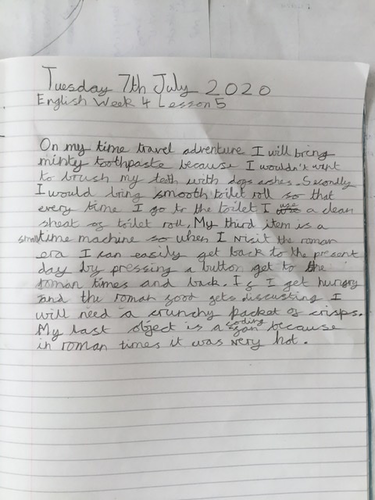 Tuesday 7th July 2020
English Week 4 Lesson 5
On my time travel adventure I will bring
minty toothpaste because I wouldn't want
to brush my teth with dogs ashes. Secondly
I would bring smooth toilet roll so that
every time I go to the toilet I use a clean
sheat of toilet roll, My third item is a
small time machine so when I visit the roman
era I can easily get back to the present
day by pressing a button get to the
roman times and back. If I get hungry
and the roman food gets discusting I
will need a crunchy packet of crisps.
My last object is a cooling fan because
in roman times it was very hot.